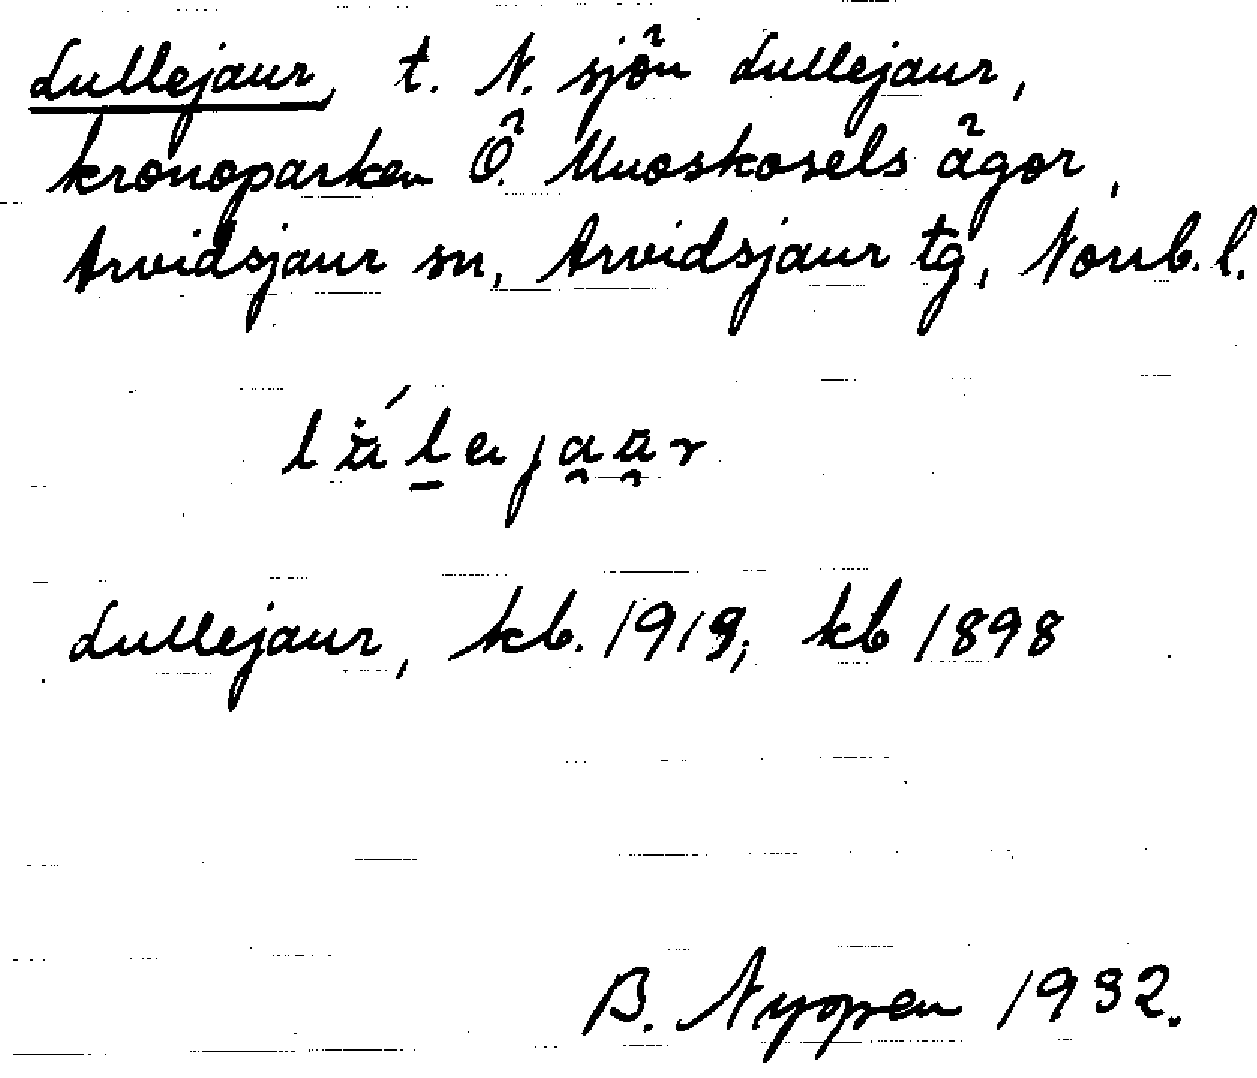 Lullejaur, t. N. sjön Lullejaur,
kronoparken Ö. Muoskosels ägor,
Arvidsjaur sn, Arvidsjaur tg, Norrb. l.
Lullejaur, kb. 1919, kb 1898
B. Nyopen 1932.